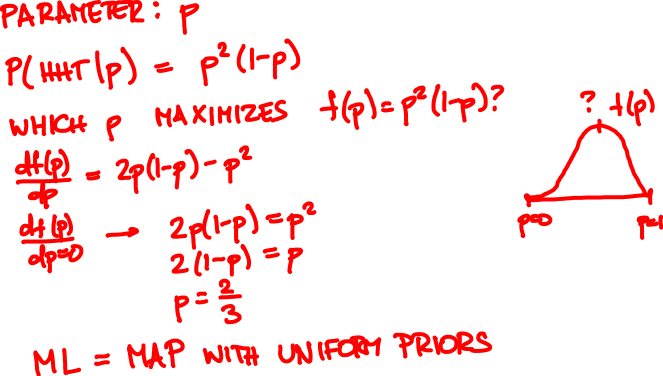 PARAMETER: p
P(HHT|p) = p²(1-p)
WHICH p MAXIMIZES f(p)=p²(1-p)?
? f(p)
df(p)/dp = 2p(1-p) - p²
p=0 p=1
df(p)/dp=0 → 2p(1-p) = p²
2(1-p) = p
p = 2/3
ML = MAP WITH UNIFORM PRIORS